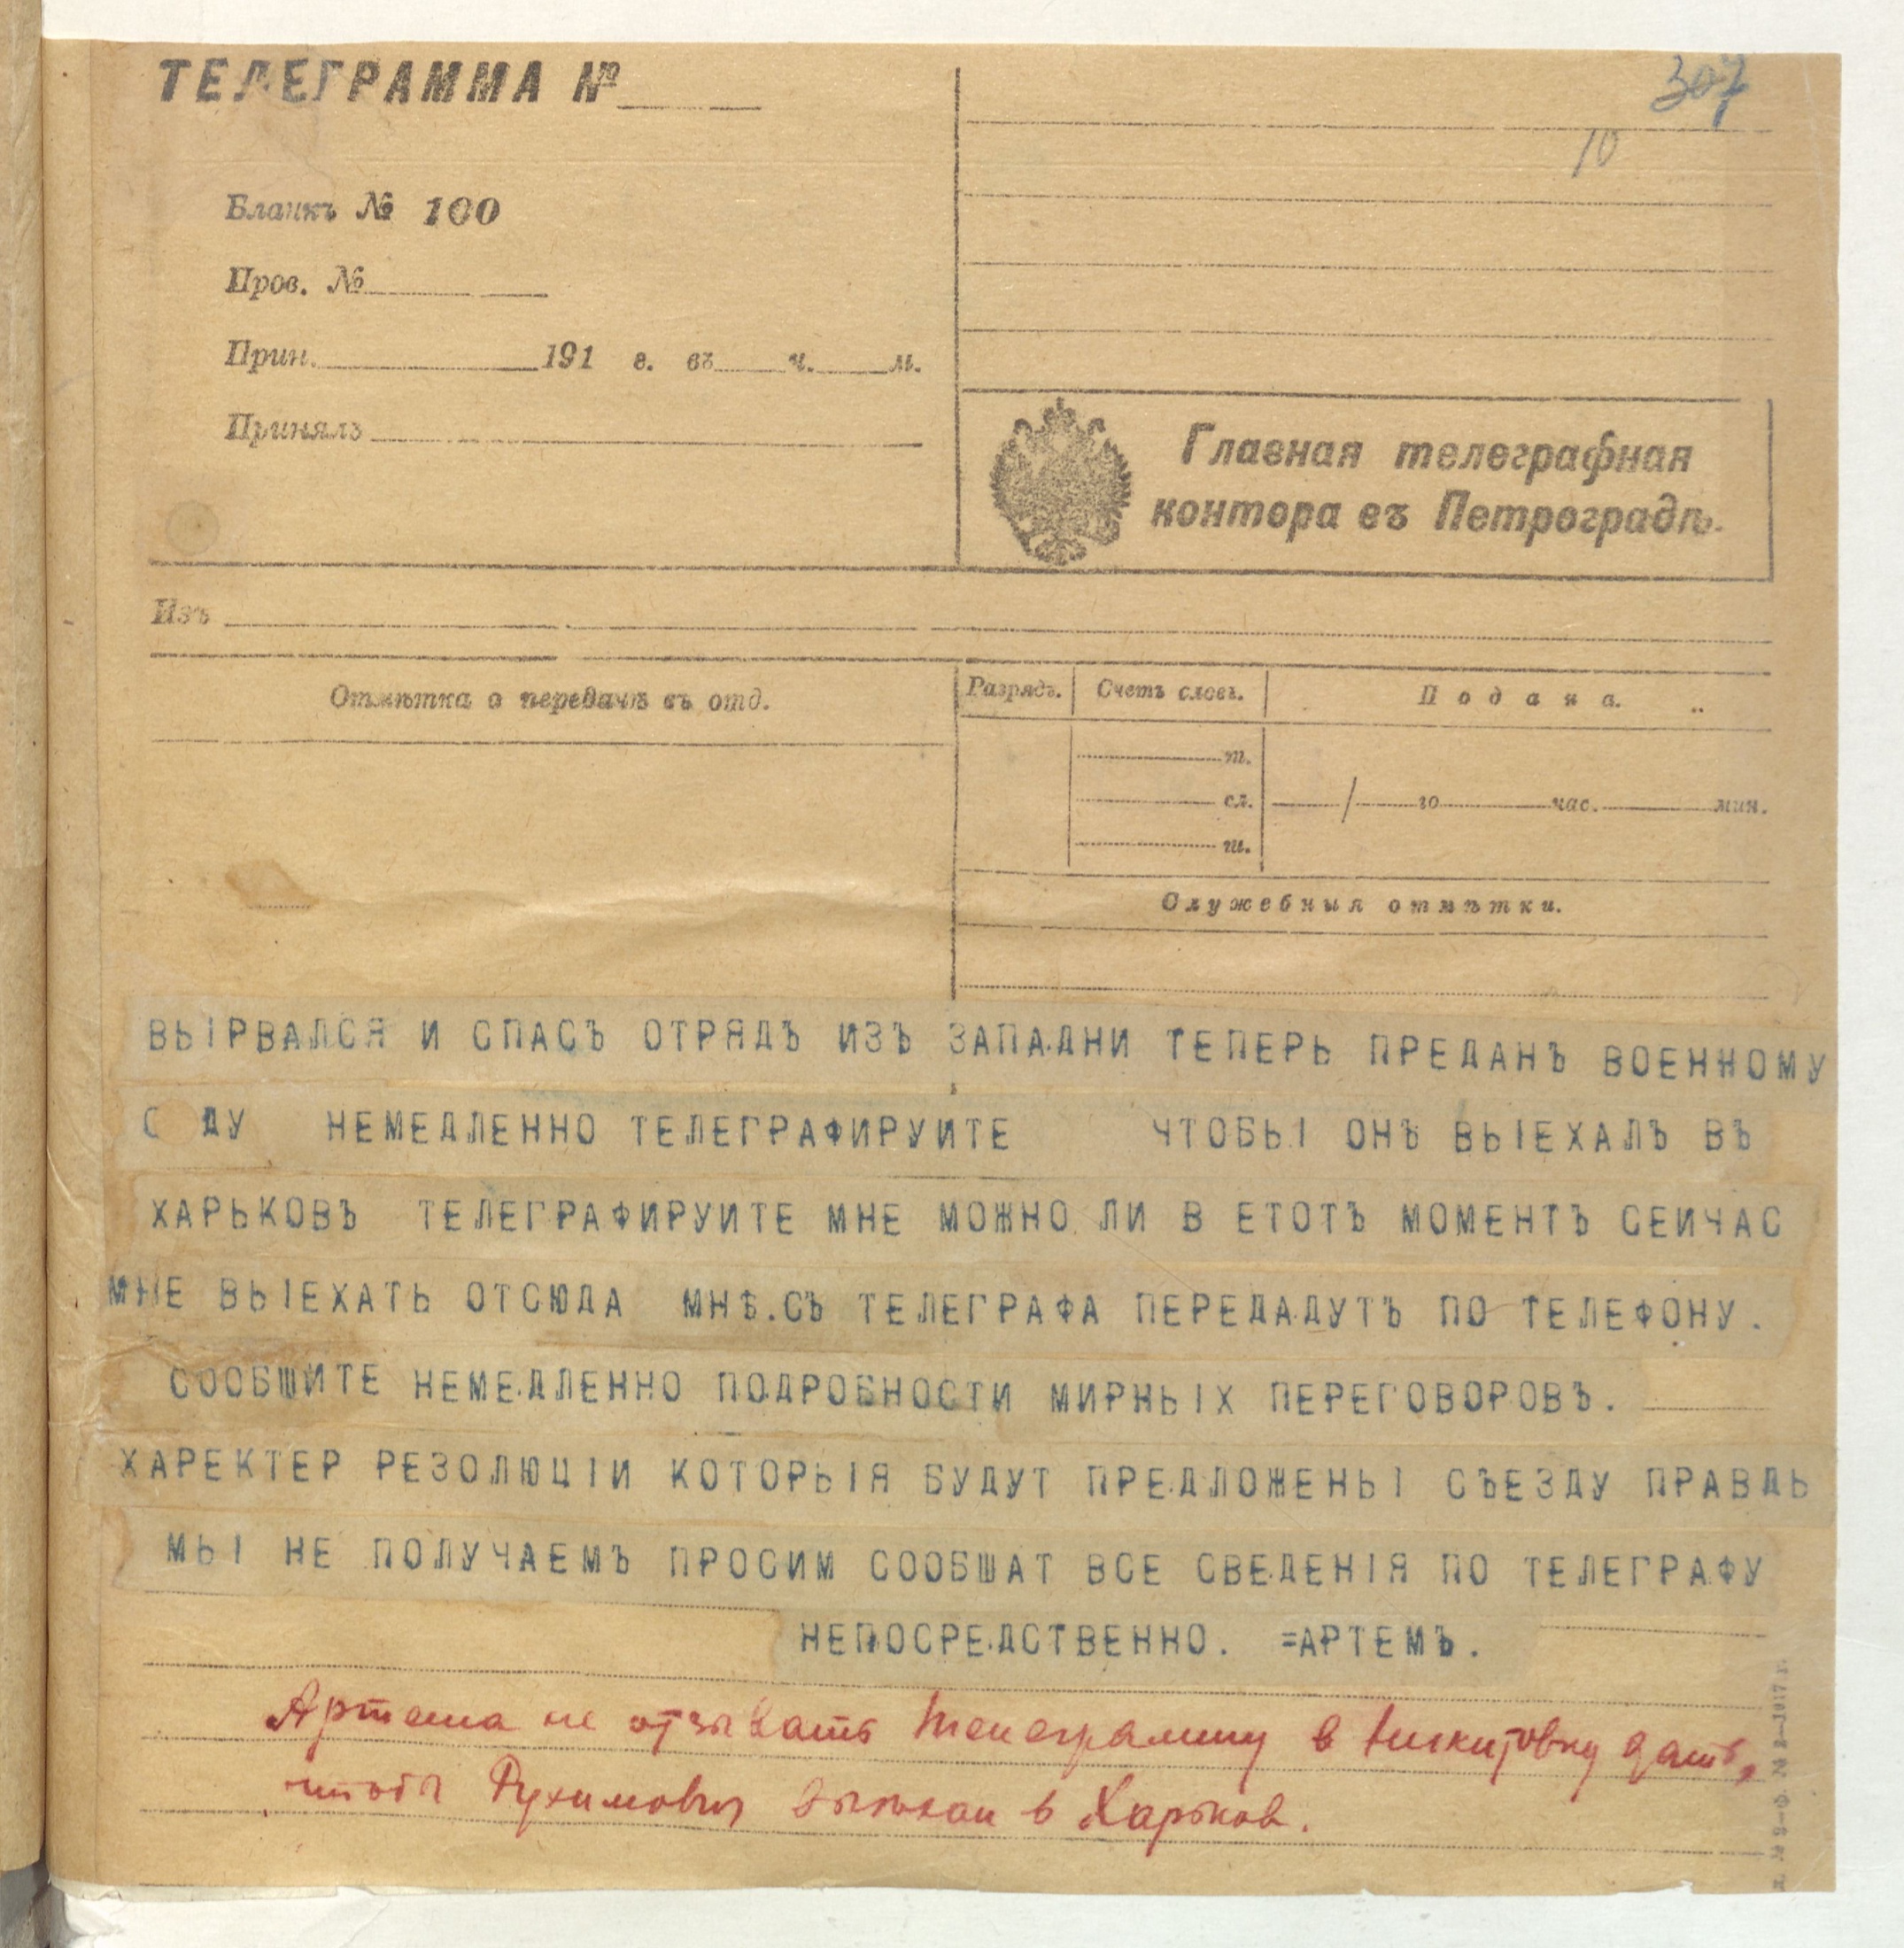 ТЕЛЕГРАММА №
307
10
Бланкъ № 100
Пров. №
Прин. 191 г. въ ч. м.
Принялъ
Главная телеграфная
контора въ Петроградѣ.
Изъ
Отмѣтка о передачѣ въ отд.
Разрядъ. Счетъ словъ. Подана.
т.
сл. / го час. мин.
ш.
Служебныя отмѣтки.
ВЫРВАЛСЯ И СПАСЪ ОТРЯДЪ ИЗЪ ЗАПАДНИ ТЕПЕРЬ ПРЕДАНЪ ВОЕННОМУ
С ДУ НЕМЕДЛЕННО ТЕЛЕГРАФИРУИТЕ ЧТОБЫ ОНЪ ВЫЕХАЛЪ ВЪ
ХАРЬКОВЪ ТЕЛЕГРАФИРУИТЕ МНЕ МОЖНО ЛИ В ЕТОТЪ МОМЕНТЪ СЕИЧАС
МНЕ ВЫЕХАТЬ ОТСЮДА МНѢ.СЪ ТЕЛЕГРАФА ПЕРЕДАДУТЪ ПО ТЕЛЕФОНУ.
СООБШИТЕ НЕМЕДЛЕННО ПОДРОБНОСТИ МИРНЫХ ПЕРЕГОВОРОВЪ.
ХАРЕКТЕР РЕЗОЛЮЦІИ КОТОРЫЯ БУДУТ ПРЕДЛОЖЕНЫ СЪЕЗДУ ПРАВДЬ
МЫ НЕ ПОЛУЧАЕМЪ ПРОСИМ СООБШАТ ВСЕ СВЕДЕНІЯ ПО ТЕЛЕГРАФУ
НЕПОСРЕДСТВЕННО. =АРТЕМЪ.
Артема не отзывать телеграмму в Никитовку дать,
чтобы Рухимович выехал в Харьков.